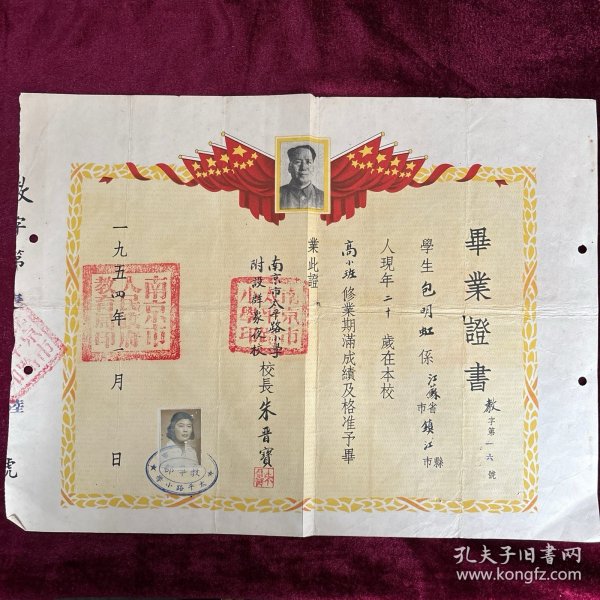 畢業證書
教字第一六號
學生包明虹係江蘇省鎮江縣
市市
人現年二十歲在本校
高小班修業期滿成績及格准予畢
業此證
南京市太平路小學
附設群眾夜校
校長朱晋寶
一九五四年一月日
教字第
陸
號
太平路小學
孔夫子旧书网
www.kongfz.com